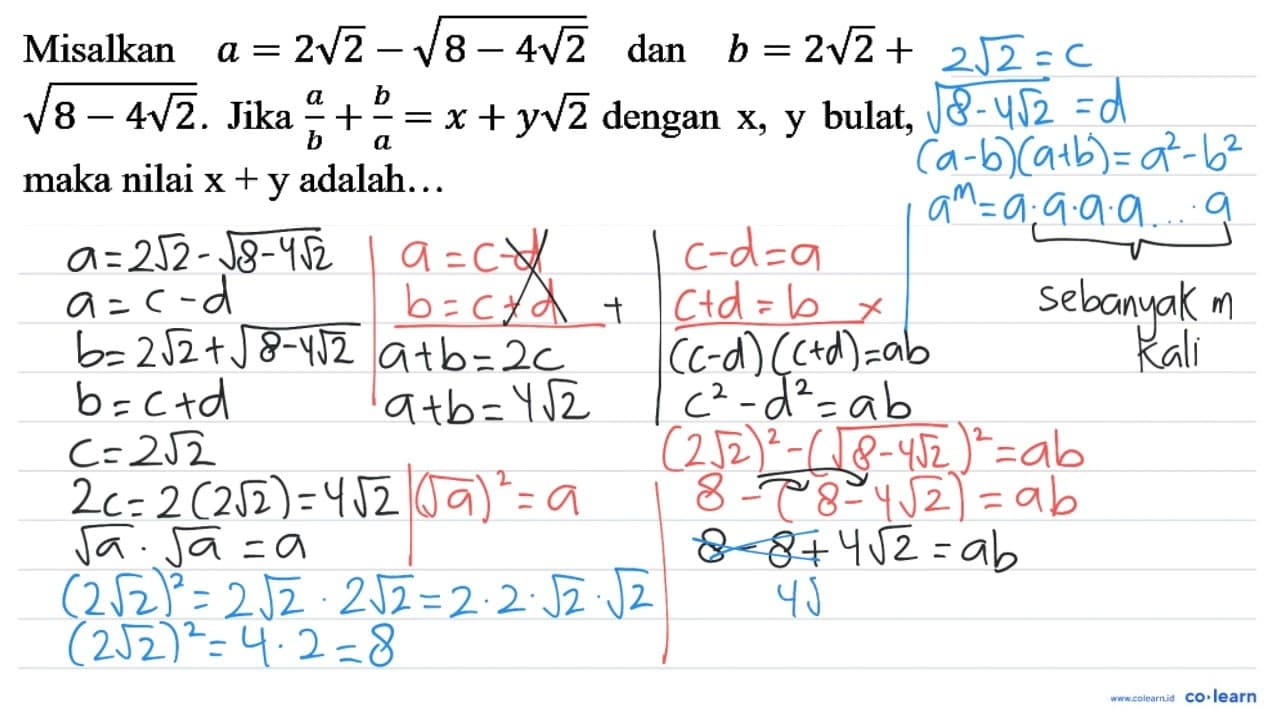 Misalkan a = 2√2 − √(8 − 4√2) dan b = 2√2 +
√(8 − 4√2). Jika a/b + b/a = x + y√2 dengan x, y bulat,
maka nilai x + y adalah...
2√2 = c
√(8-4√2) = d
(a-b)(a+b) = a² - b²
a^m = a·a·a·a...·a
sebanyak m
kali
a = 2√2 - √(8-4√2)
a = c - d
b = 2√2 + √(8-4√2)
b = c + d
c = 2√2
2c = 2(2√2) = 4√2
√a · √a = a
(2√2)² = 2√2 · 2√2 = 2·2·√2·√2
(2√2)² = 4·2 = 8
a = c-d
b = c+d +
a+b = 2c
a+b = 4√2
(√a)² = a
c-d = a
c+d = b ×
(c-d)(c+d) = ab
c² - d² = ab
(2√2)² - (√(8-4√2))² = ab
8 - (8-4√2) = ab
8 - 8 + 4√2 = ab
4√
www.colearn.id co·learn